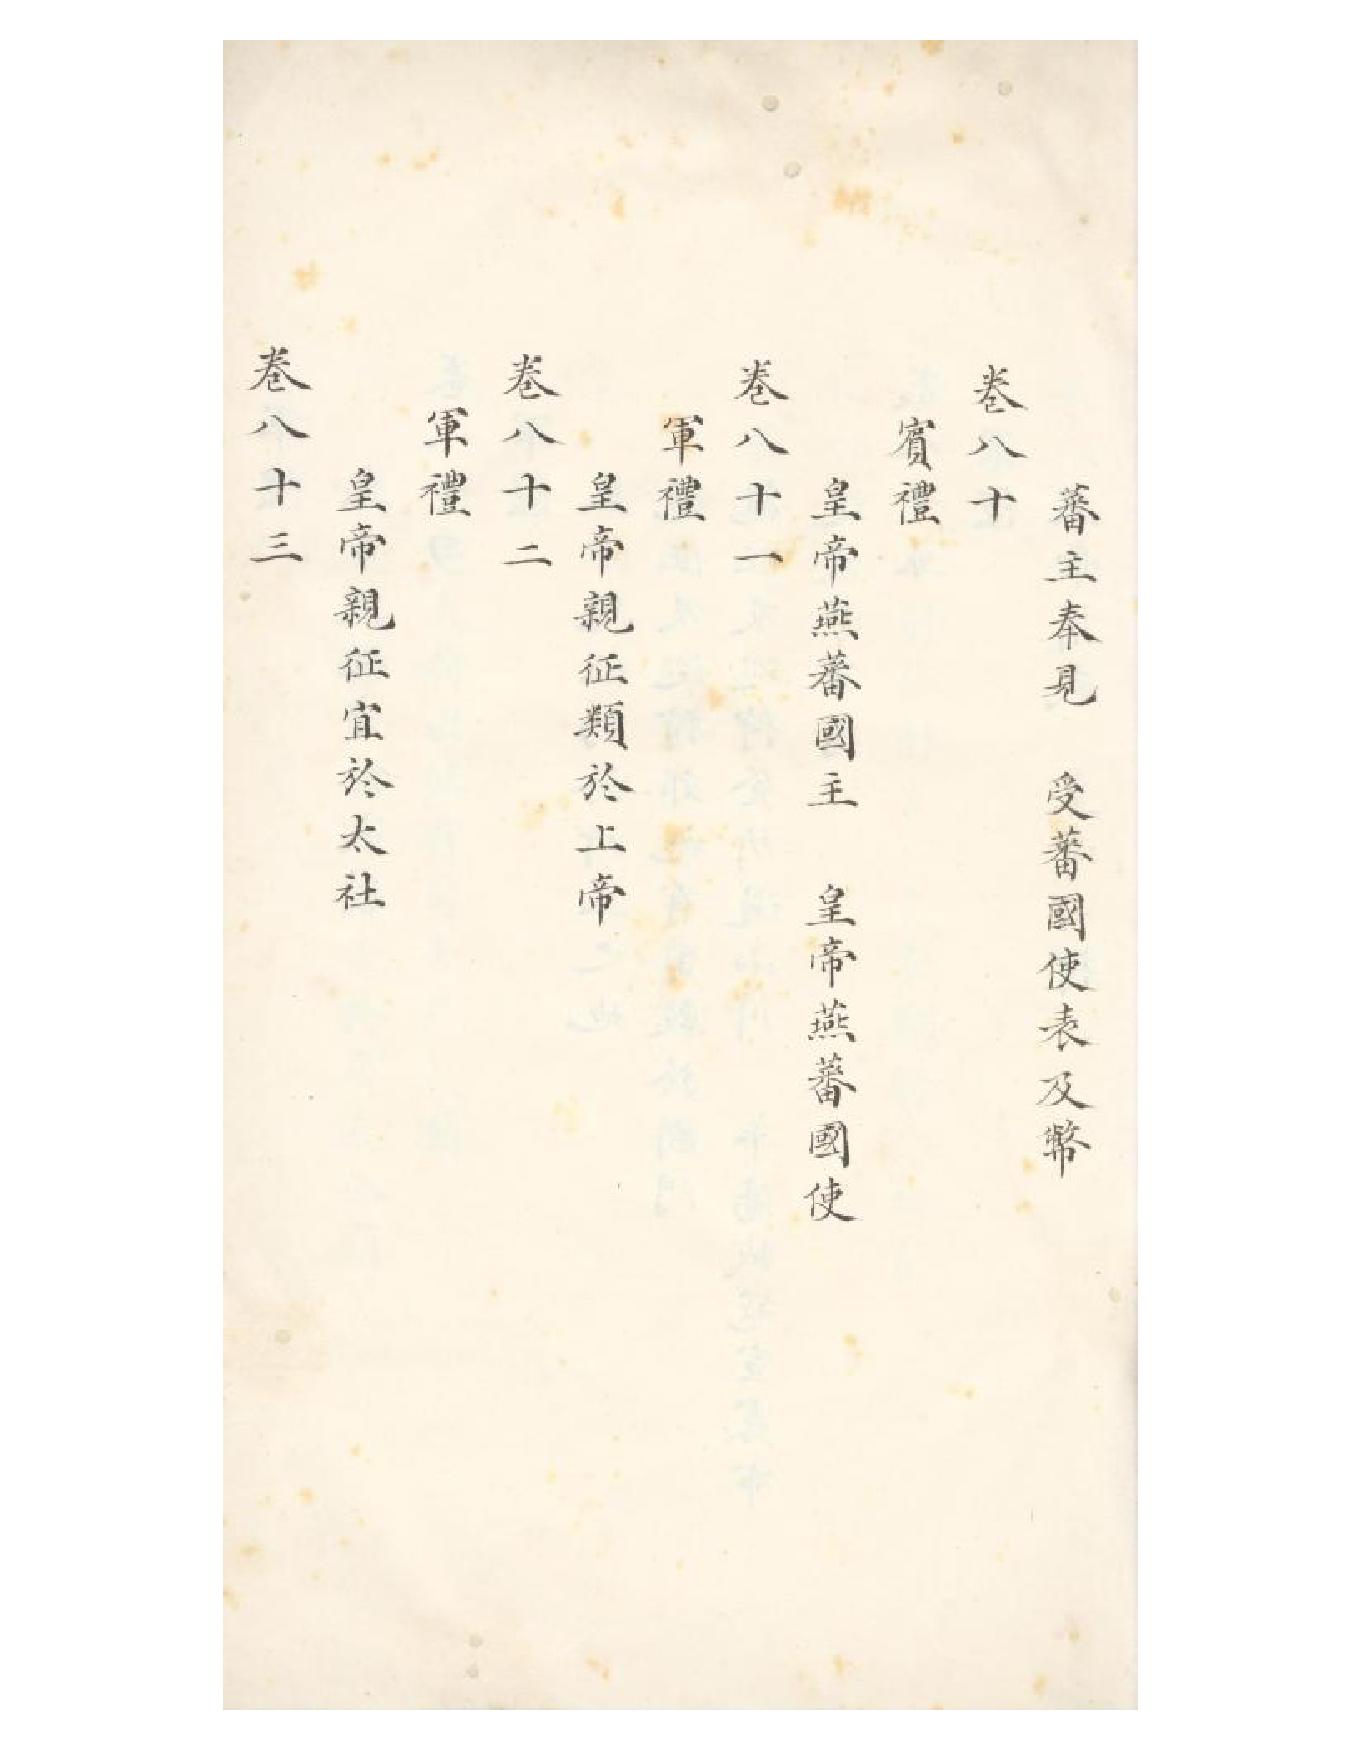 蕃主奉見　受蕃國使表及幣
卷八十
賓禮
皇帝燕蕃國主　皇帝燕蕃國使
卷八十一
軍禮
皇帝親征類於上帝
卷八十二
軍禮
皇帝親征宜於太社
卷八十三